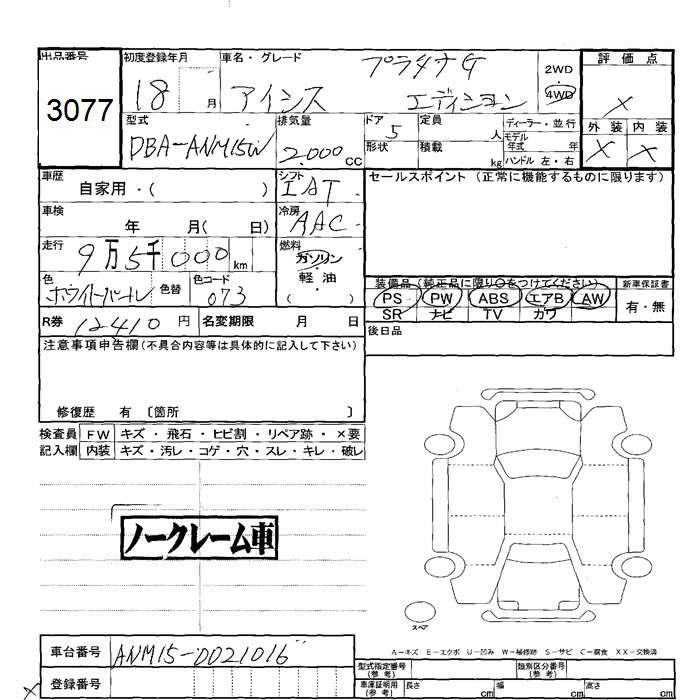 出品番号 初度登録年月 車名・グレード プラタナG 評価点
3077 18 月 アイシス エディション 2WD 4WD X
型式 排気量 ドア 定員 人 ディーラー・並行 モデル年式 年 外装 内装
DBA-ANM15W 2.000 CC 5 形状 積載 kg ハンドル 左・右 X X
車歴 自家用・( ) シフト IAT セールスポイント (正常に機能するものに限ります)
車検 年 月( 日) 冷房 AAC
走行 9万5千000 km 燃料 ガソリン・軽油・( )
色 ホワイトパール 色替 色コード 073
装備品 (純正品に限り○をつけてください) 新車保証書
PS PW ABS エアB AW 有・無
SR ナビ TV カワ
R券 12410 円 名変期限 月 日 後日品
注意事項申告欄(不具合内容等は具体的に記入して下さい)
修復歴 有 〔箇所 〕
検査員 FW キズ・飛石・ヒビ割・リペア跡・×要
記入欄 内装 キズ・汚レ・コゲ・穴・スレ・キレ・破レ
ノークレーム車
スペア
A-キズ E-エクボ U-凹み W-補修跡 S-サビ C-腐食 XX-交換済
車台番号 ANM15-0021016
登録番号
型式指定番号(参考) 類別区分番号(参考)
車庫証明用(参考) 長さ cm 幅 cm 高さ cm